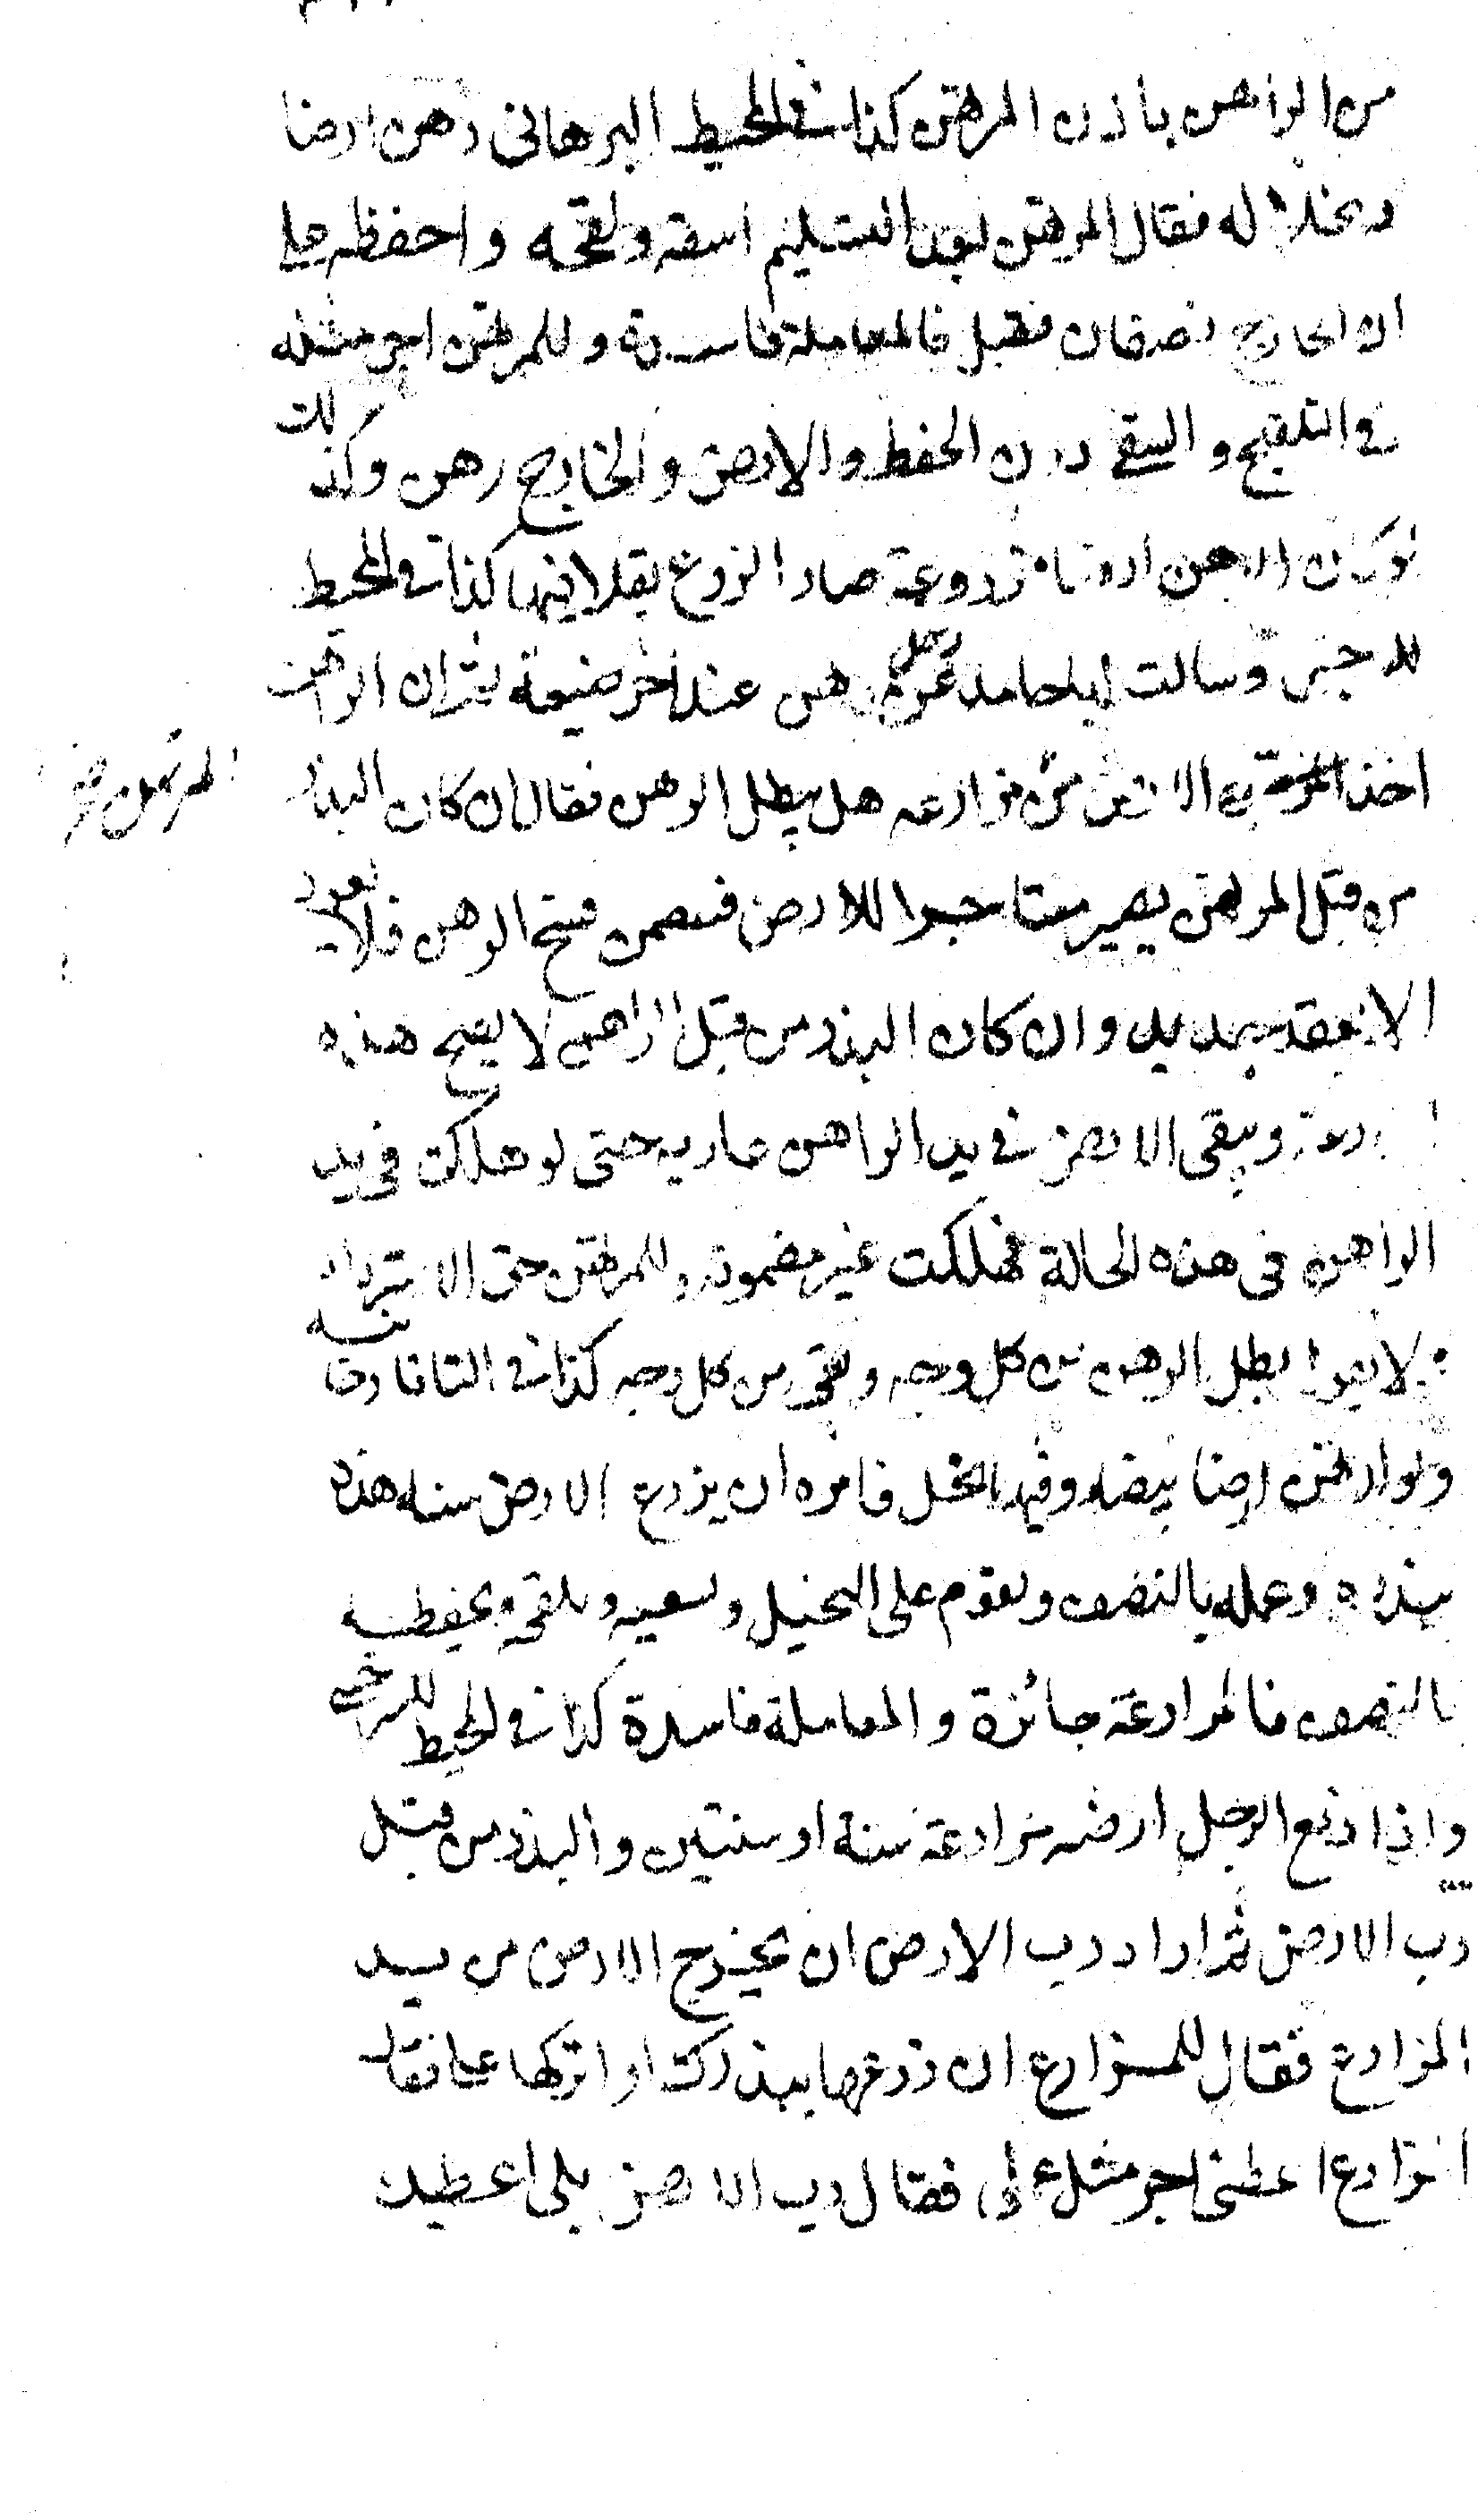 من الراهن باذن المرتهن كذا في المحيط البرهاني رهن ارضا
ونخلا له فقال للمرتهن بعد التسليم اسقه ولقحه واحفظه على
ان الخارج نصفان فقبل فالمعاملة فاسدة وللمرتهن اجر مثله
في التلقيح والسقي دون الحفظ والارض والخارج رهن وكذلك
لو كان الرهن ارضا مزروعة صار الزرع بقلا فيها كذا في المحيط
للسرخسي وسالت ابا حامد عن رجل رهن عند اخر ضيعة ثم ان الراهن
اخذ الارض من مزارعه هل يبطل الرهن فقال ان كان البذر
المرتهن صح
من قبل المرتهن يصير مستاجرا للارض فتضمن فسخ الرهن فلا يعود
الا بعقد جديد وان كان البذر من قبل الراهن لا يصح هذه
ويبقى الارض في يد الراهن عارية حتى لو هلكت في يد
الراهن في هذه الحالة فهلكت غير مضمونة وللمرتهن حق الاسترداد
لا يبطل الرهن من كل وجه وبقي من كل وجه كذا في التاتارخانية
ولو ارتهن ارضا بيضا وفيها نخل فامره ان يزرع الارض سنة هذه
ببذره وعمله بالنصف ويقوم على النخيل ويسقيه ويلقحه ويحفظه
بالنصف فالمزارعة جائزة والمعاملة فاسدة كذا في المحيط للسرخسي
واذا دفع الرجل ارضه مزارعة سنة او سنتين والبذر من قبل
رب الارض ثم اراد رب الارض ان يخرج الارض من يد
المزارع فقال للمزارع ان زرعها ببذرك او اتركها علي فقال
المزارع اعطني اجر مثل عملي فقال رب الارض بلى اعطيك